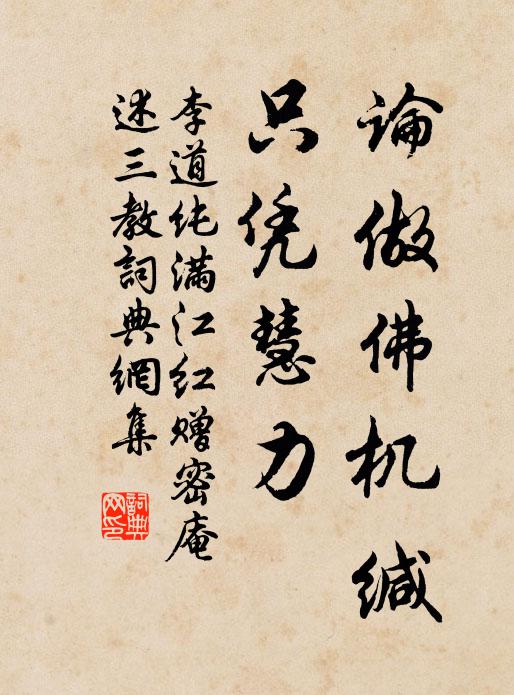 論做佛机缄
只凭慧力
李道纯满江红赠密庵
述三教詞典網集
詞典网印